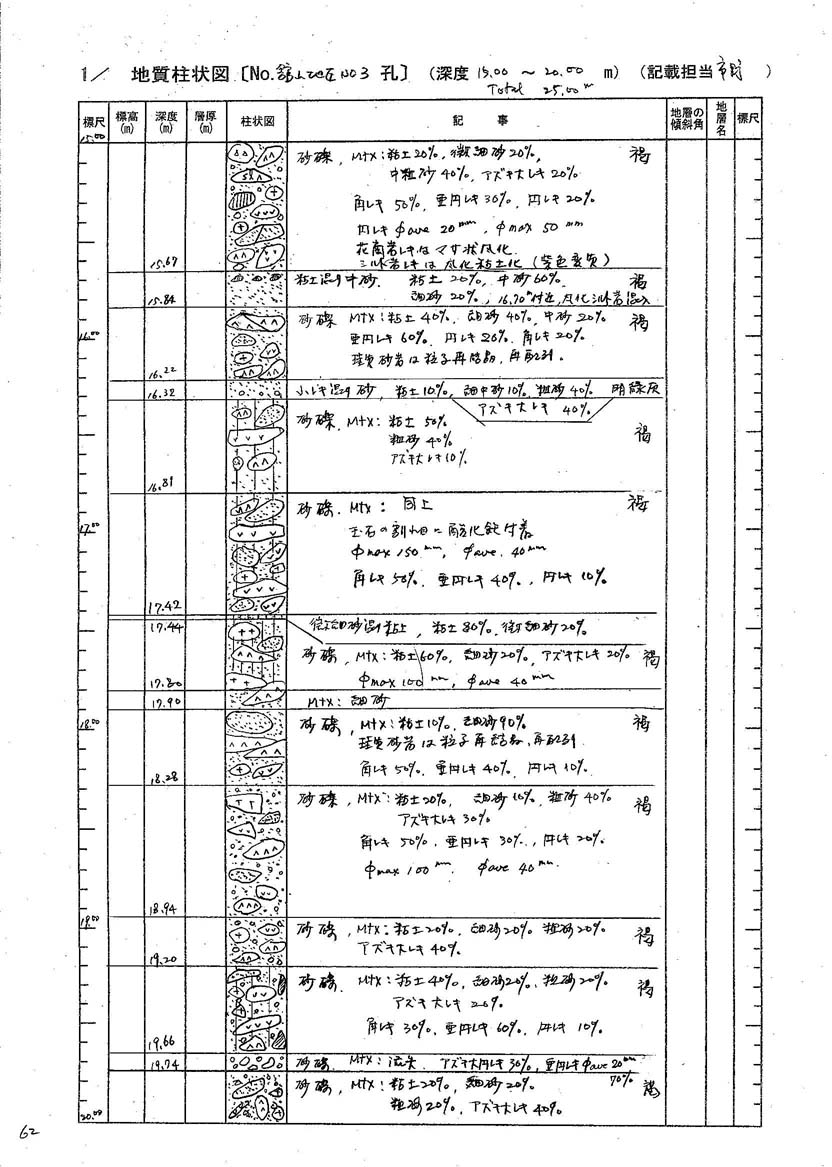 1/ 地質柱状図〔No. 舘上地区NO3 孔〕 (深度 15.00 ~ 20.00 m) (記載担当 )
Total 25.00m
標尺 標高(m) 深度(m) 層厚(m) 柱状図 記事 地層の傾斜角 地層名 標尺
15.00
砂礫, Mtx:粘土20%, 微細砂20%, 褐
中粒砂40%, アズキ大レキ20%
角レキ50%, 亜円レキ30%, 円レキ20%
円レキφave 20mm, φmax 50mm
花崗岩レキはマサ状風化.
15.67 シルト岩レキは風化粘土化(紫色変質)
粘土混り中砂 粘土20%, 中砂60% 褐
15.84 細砂20%, 16.70m付近, 風化シルト岩混入
砂礫 Mtx:粘土40%, 細砂40%, 中砂20% 褐
16.00 亜円レキ60%, 円レキ20%, 角レキ20%
16.22 珪質砂岩は粒子再結晶, 再配列.
16.32 小レキ混り砂, 粘土10%, 細中砂10%, 粗砂40% 明緑灰
アズキ大レキ 40%
砂礫, Mtx:粘土50% 褐
粗砂40%
アズキ大レキ10%
16.81
砂礫, Mtx: 同上 褐
17.00 玉石の割れ目に酸化鉄付着
φmax 150mm, φave. 40mm
角レキ50%, 亜円レキ40%, 円レキ10%
17.42
17.44 微細砂混り粘土, 粘土80%, 微細砂20%
砂礫, Mtx:粘土60%, 細砂20%, アズキ大レキ20% 褐
17.80 φmax 100mm, φave 40mm
17.90 Mtx:細砂
18.00 砂礫, Mtx:粘土10%, 細砂90% 褐
珪質砂岩は粒子再結晶, 再配列
18.28 角レキ50%, 亜円レキ40%, 円レキ10%
砂礫, Mtx:粘土20%, 細砂10%, 粗砂40% 褐
アズキ大レキ30%
角レキ50%, 亜円レキ30%, 円レキ20%
φmax 100mm φave 40mm
18.94
19.00 砂礫, Mtx:粘土20%, 細砂20%, 粗砂20% 褐
19.20 アズキ大レキ40%
砂礫, Mtx:粘土40%, 細砂20%, 粗砂20% 褐
アズキ大レキ20%
19.66 角レキ30%, 亜円レキ60%, 円レキ10%
19.74 砂礫, Mtx:流失, アズキ大円レキ30%, 亜円レキφave 20mm
70%
砂礫, Mtx:粘土20%, 細砂20% 褐
20.00 粗砂20%, アズキ大レキ40%
62